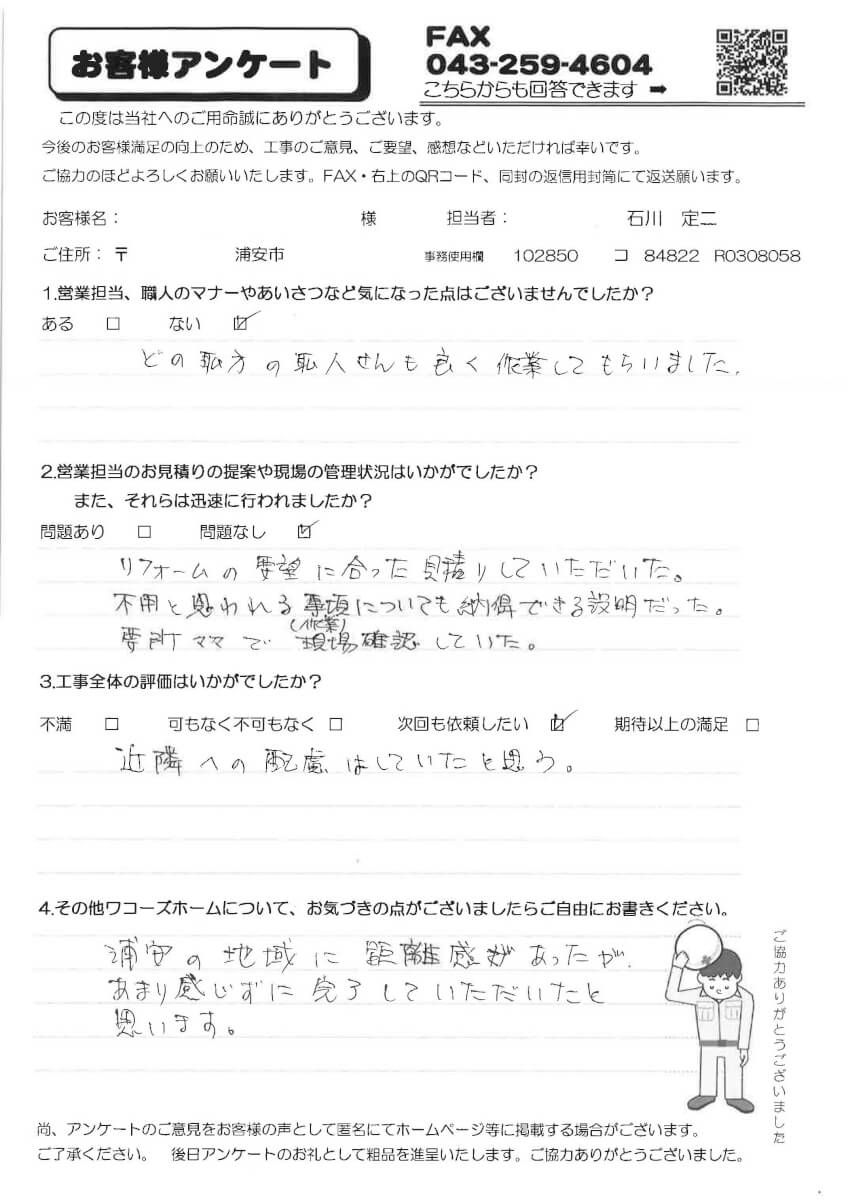 お客様アンケート
FAX
043-259-4604
こちらからも回答できます ➡
この度は当社へのご用命誠にありがとうございます。
今後のお客様満足の向上のため、工事のご意見、ご要望、感想などいただければ幸いです。
ご協力のほどよろしくお願いいたします。FAX・右上のQRコード、同封の返信用封筒にて返送願います。
お客様名： 様 担当者： 石川 定二
ご住所： 〒 浦安市 事務使用欄 102850 コ 84822 R0308058
1.営業担当、職人のマナーやあいさつなど気になった点はございませんでしたか？
ある □ ない ☑
どの 方の職人さんも良く作業してもらいました.
2.営業担当のお見積りの提案や現場の管理状況はいかがでしたか？
また、それらは迅速に行われましたか？
問題あり □ 問題なし ☑
リフォームの要望に合った見積りしていただいた。
不用と思われる事項についても納得できる説明だった。
(作業)
要所ママで現場確認していた。
3.工事全体の評価はいかがでしたか？
不満 □ 可もなく不可もなく □ 次回も依頼したい ☑ 期待以上の満足 □
近隣への配慮はしていたと思う。
4.その他ワコーズホームについて、お気づきの点がございましたらご自由にお書きください。
浦安の地域に距離感があったが.
あまり感じずに完了していただいたと
思います。
ご協力ありがとうございました
尚、アンケートのご意見をお客様の声として匿名にてホームページ等に掲載する場合がございます。
ご了承ください。 後日アンケートのお礼として粗品を進呈いたします。ご協力ありがとうございました。